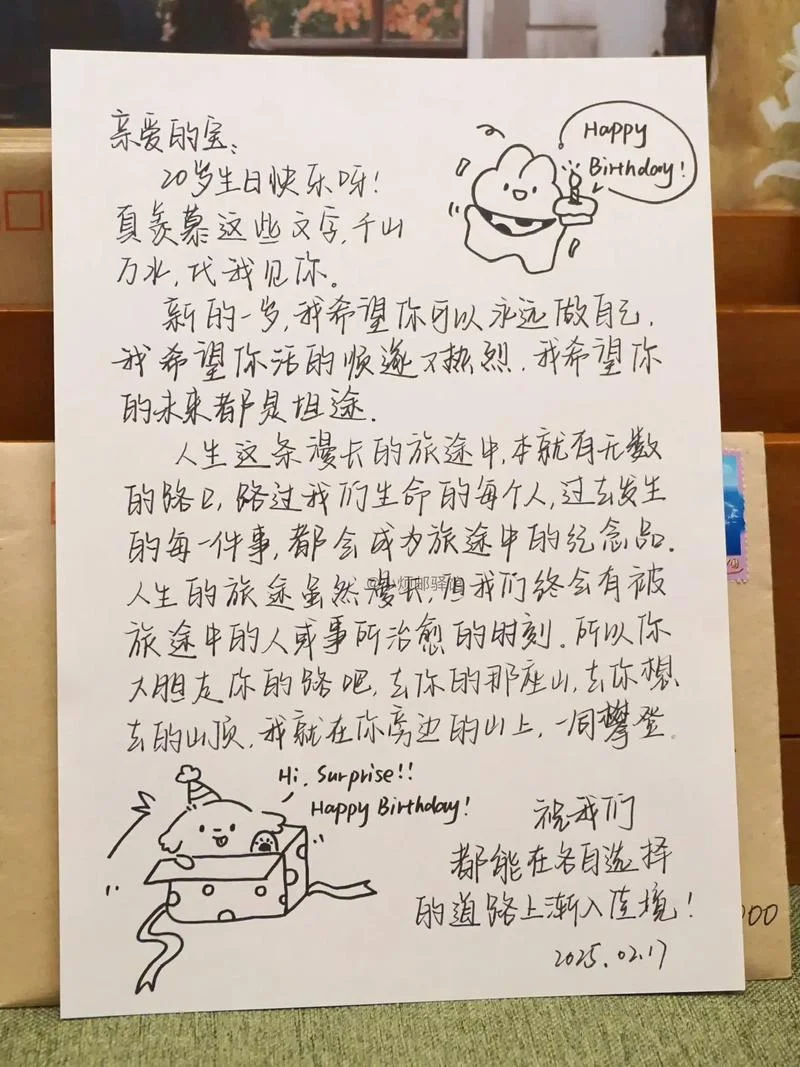 亲爱的宝:
20岁生日快乐呀!
真羡慕这些文字,千山
万水,代我见你。
Happy
Birthday!
新的一岁,我希望你可以永远做自己,
我希望你活的顺遂又热烈.我希望你
的未来都是坦途.
人生这条漫长的旅途中,本就有无数
的路口,路过我们生命的每个人,过去发生
的每一件事,都会成为旅途中的纪念品.
人生的旅途虽然漫长,但我们终会有被
旅途中的人或事所治愈的时刻.所以你
大胆走你的路吧,去你的那座山,去你想
去的山顶,我就在你旁边的山上,一同攀登.
Hi, Surprise!!
Happy Birthday!
祝我们
都能在各自选择
的道路上渐入佳境!
2025.02.17